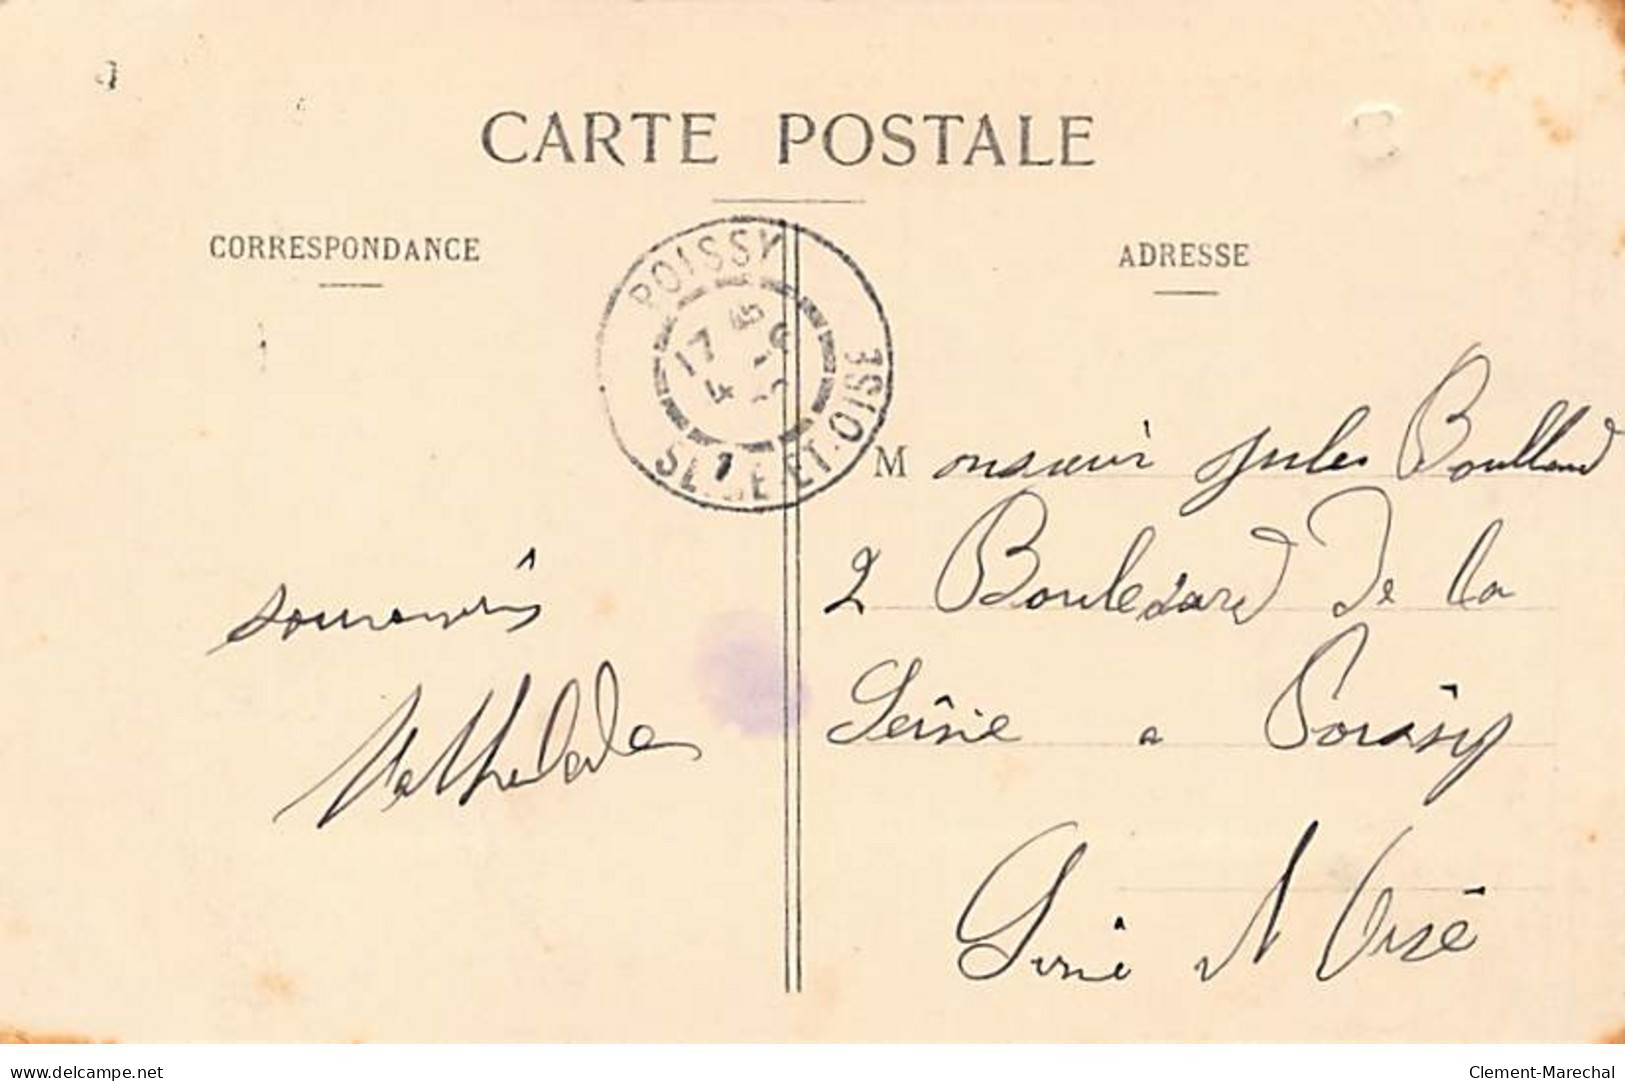 CARTE POSTALE
CORRESPONDANCE
ADRESSE
POISSY
17
4
SEINE-ET-OISE
Monsieur Jules
2 Boulevard de la
Seine a Poissy
Seine et Oise
souvenirs
delcampe.net
Clement-Marechal